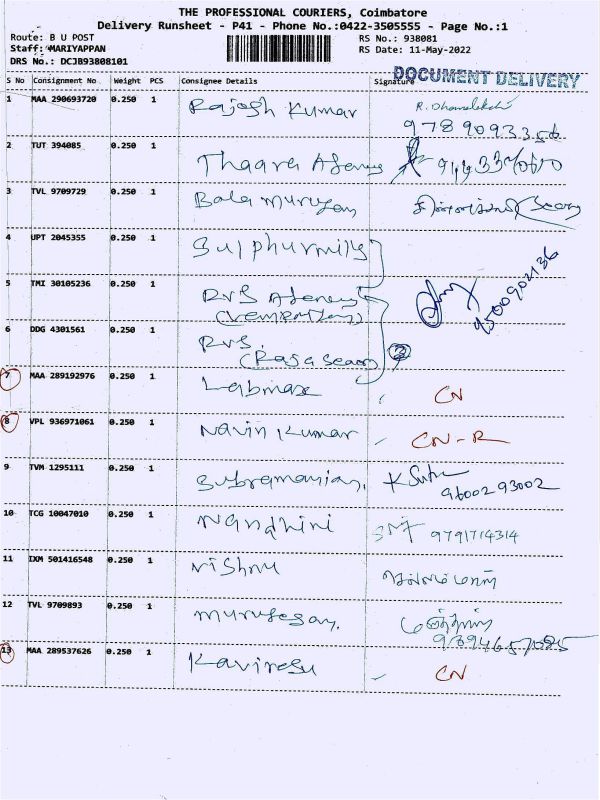 THE PROFESSIONAL COURIERS, Coimbatore
Delivery Runsheet - P41 - Phone No.:0422-3505555 - Page No.:1
Route: B U POST RS No.: 938081
Staff: MARIYAPPAN RS Date: 11-May-2022
DRS No.: DCJB93808101
DOCUMENT DELIVERY
S No Consignment No Weight PCS Consignee Details Signature
1 MAA 290693720 0.250 1 Rajesh Kumar
9789093356
2 TUT 394085 0.250 1 Thaara Agency
3 TVL 9709729 0.250 1 Bala murugan
4 UPT 2045355 0.250 1 Sulphurmills
9500902136
5 TMI 30105236 0.250 1 RVS Agency
6 DDG 4301561 0.250 1 RVS
7 MAA 289192976 0.250 1 Labmax CN
8 VPL 936971061 0.250 1 Navin Kumar CN-R
9 TVM 1295111 0.250 1 Subramanian, K
9600293002
10 TCG 10047010 0.250 1 Nandhini 9791714314
11 IXM 501416548 0.250 1 Vishnu
12 TVL 9709893 0.250 1 murugesan.
13 MAA 289537626 0.250 1 CN